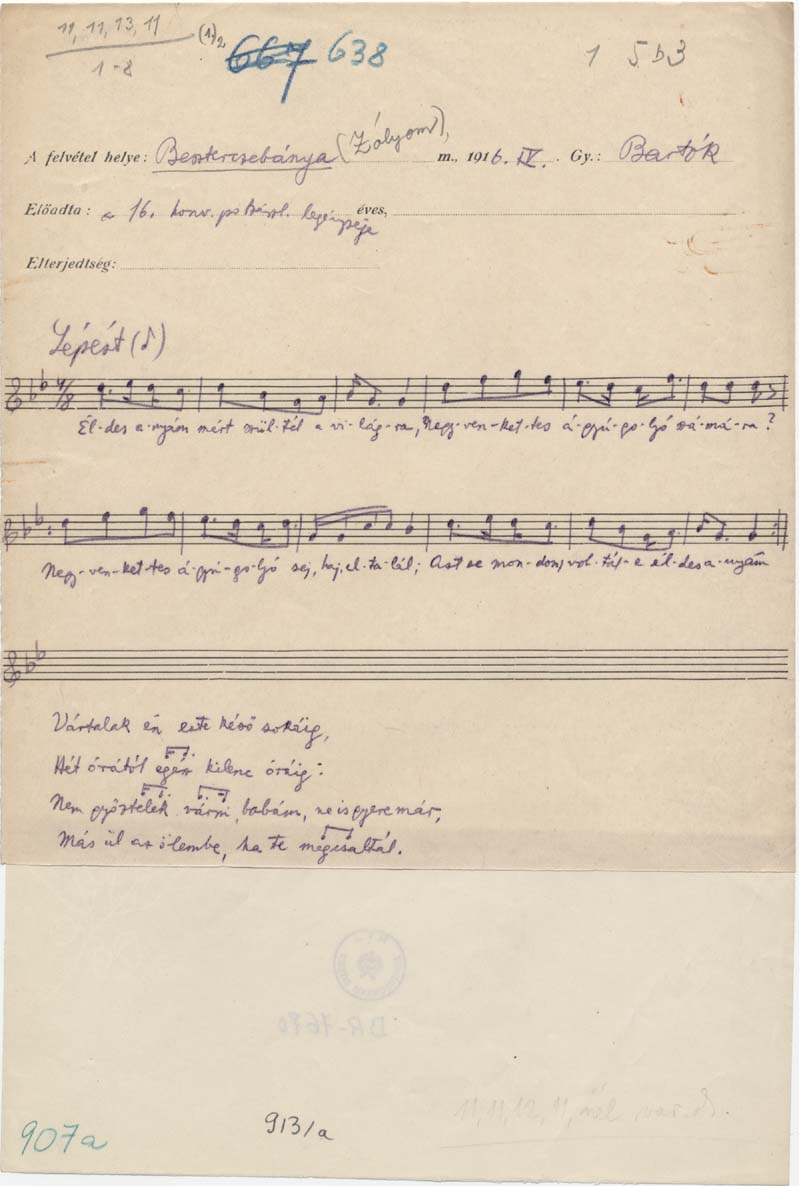 11, 11, 13, 11
1-8
667 638
1 5 b 3
A felvétel helye: Besztercebánya (Zólyom), m., 1916. IV. Gy.: Bartók
Előadta: a 16. honv. legénysége éves,
Elterjedtség:
Lépést (♪)
4/8
Él-des a-nyám mért szül-tél a vi-lág-ra, Negy-ven-ket-tes á-gyú-go-ljó szá-má-ra?
Negy-ven-ket-tes á-gyú-go-ljó sej, haj, el-ta-lál; Azt se mon-dom, vol-tál-e él-des a-nyám
Vártalak én este késő sokáig,
Hét órától egész kilenc óráig:
Nem győztelek várni, babám, ne is gyere már,
Más ül az ölembe, ha te megcsaltál.
BR-1690
11, 11, 12, 11,
907a
913/a